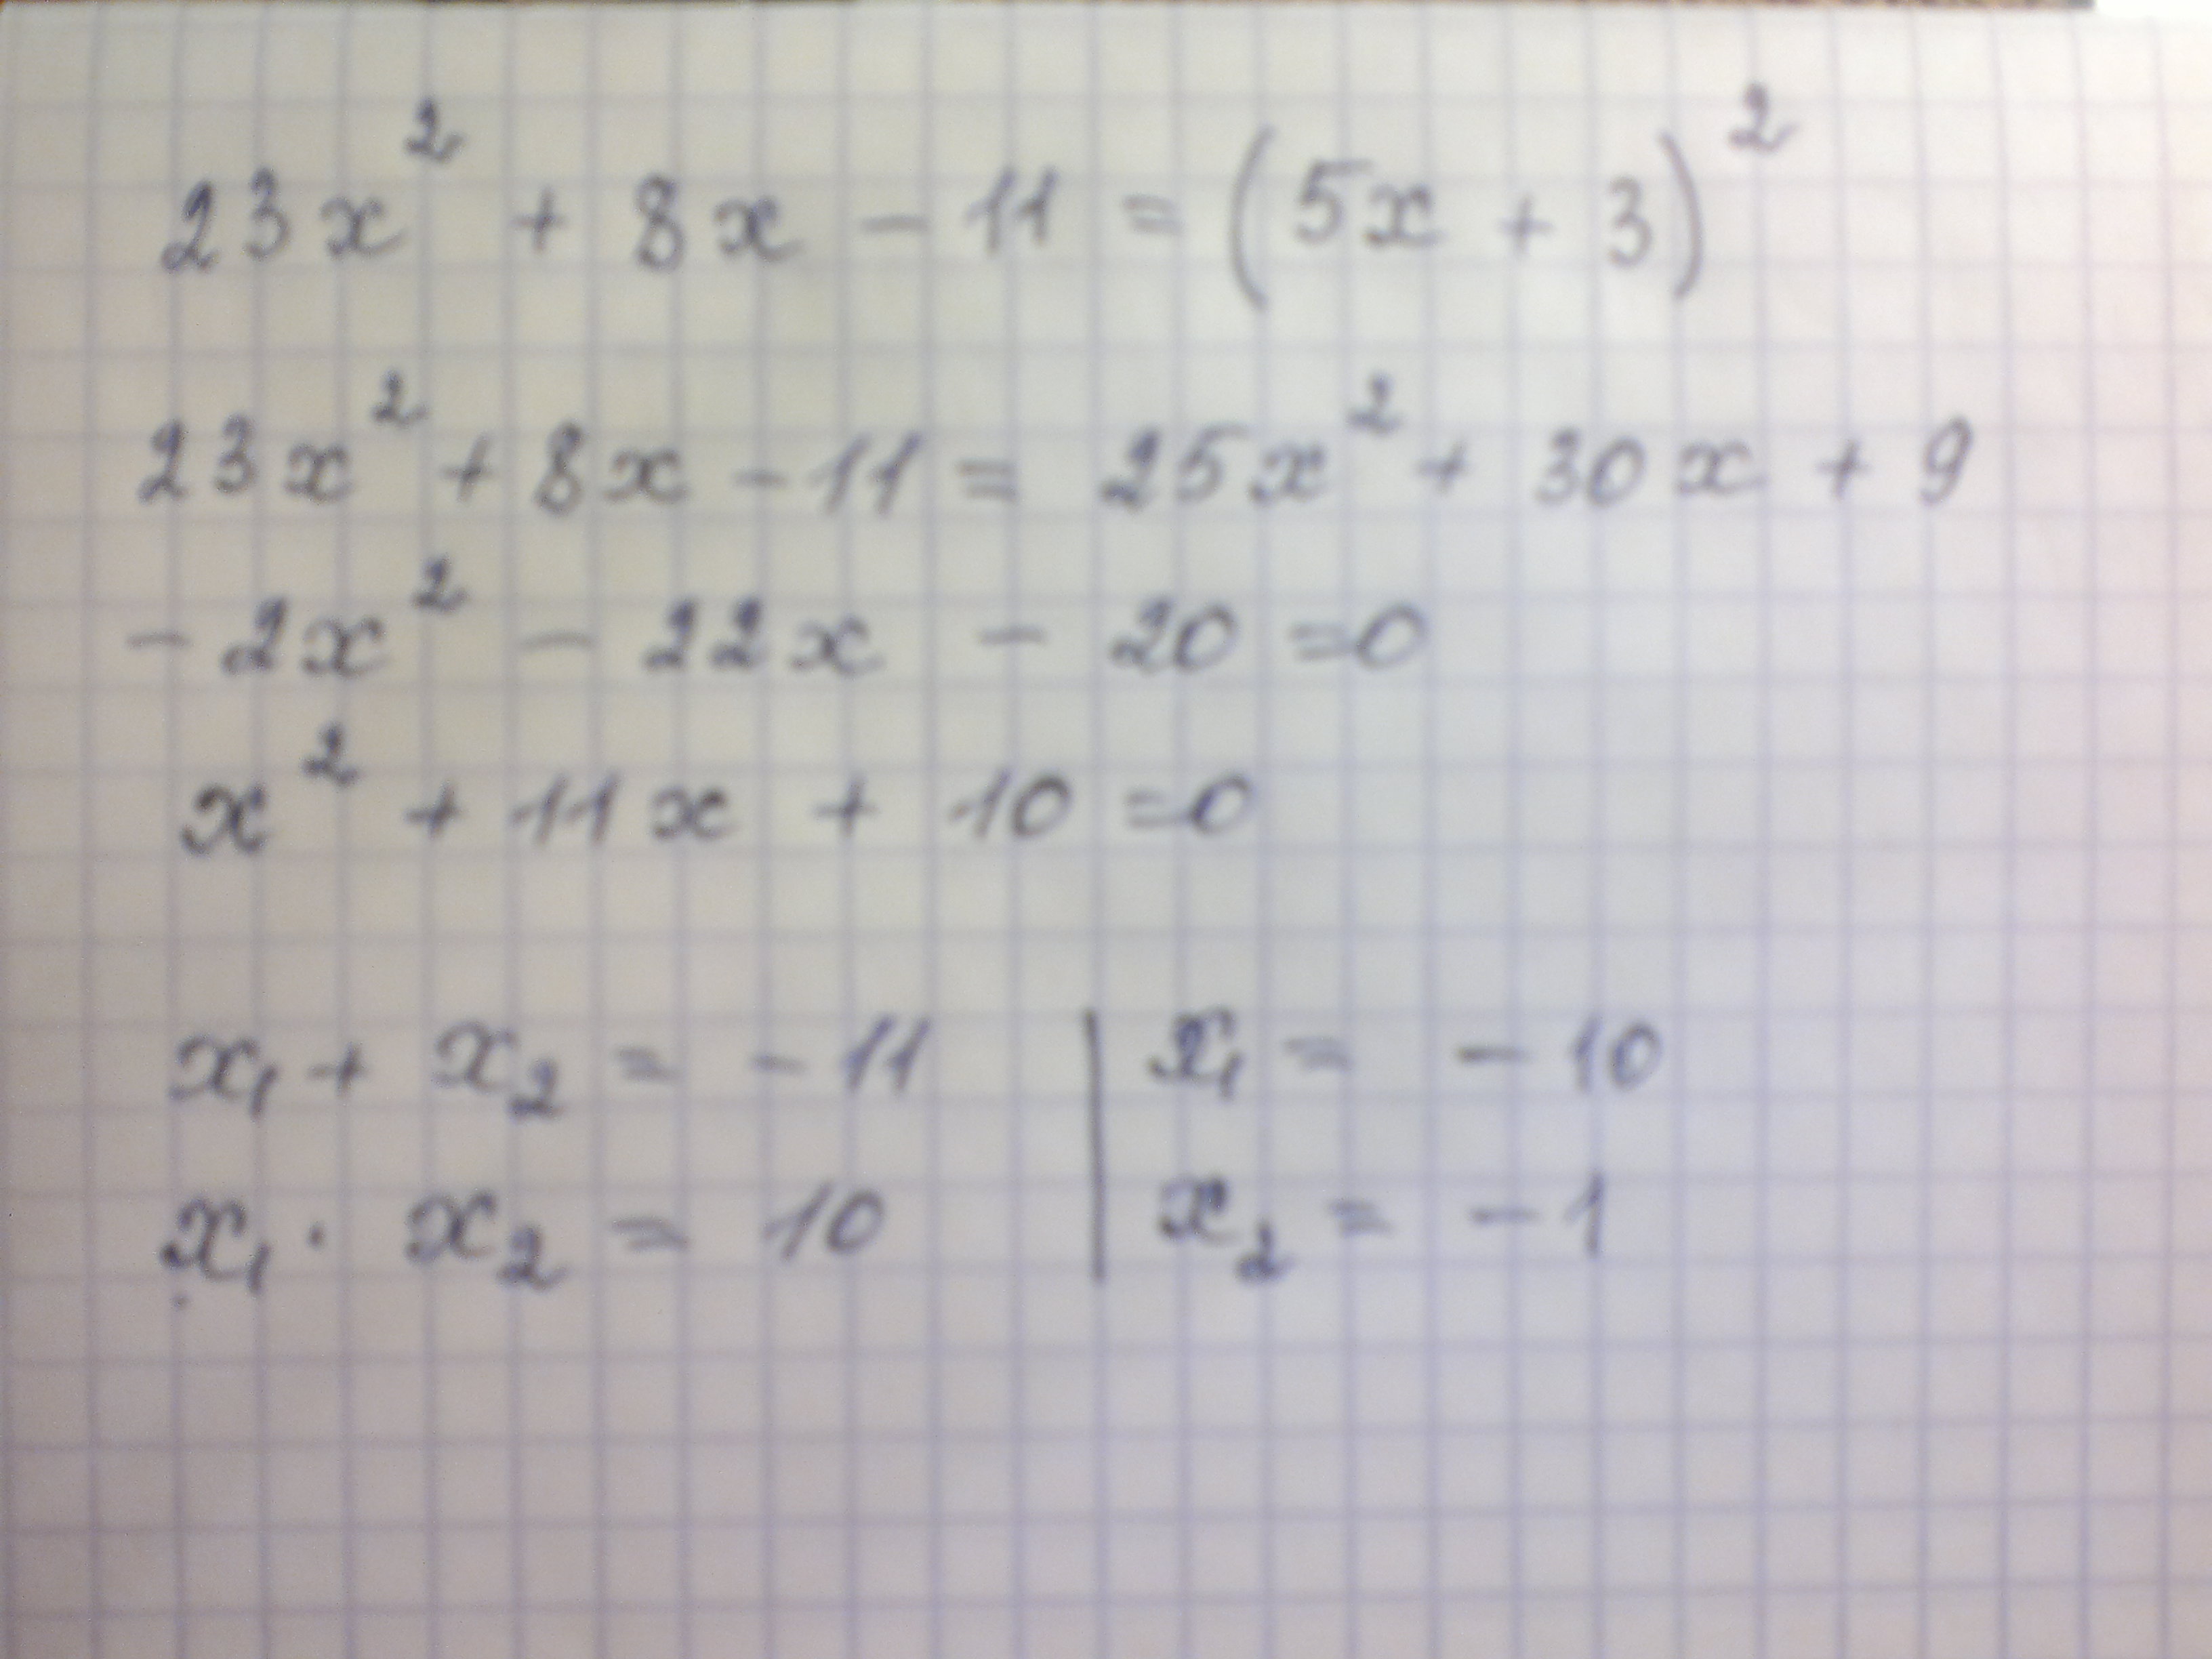 23x² + 8x - 11 = (5x + 3)²
23x² + 8x - 11 = 25x² + 30x + 9
- 2x² - 22x - 20 = 0
x² + 11x + 10 = 0
x₁ + x₂ = - 11 | x₁ = - 10
x₁ · x₂ = 10 | x₂ = - 1